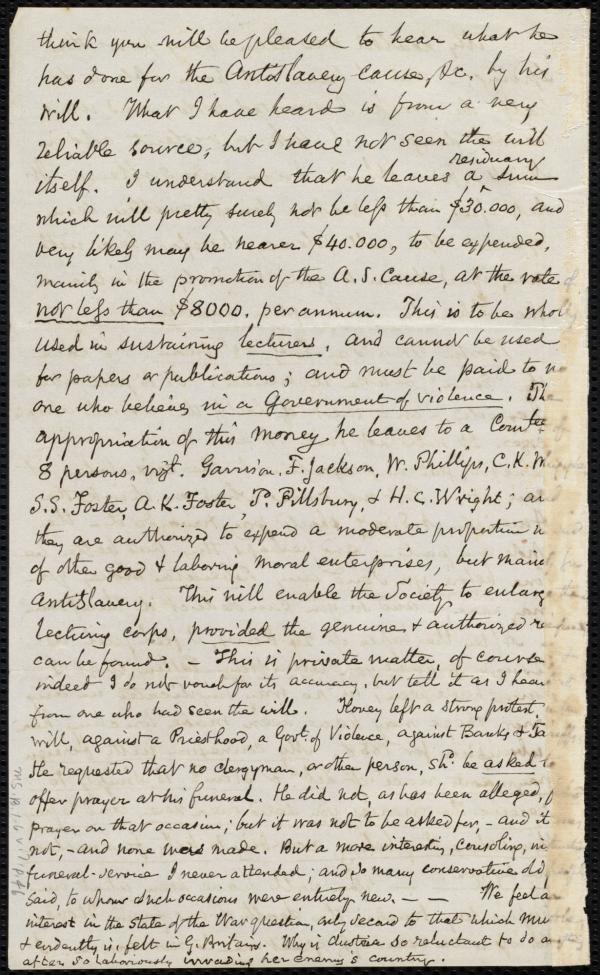 think you will be pleased to hear what he
has done for the AntiSlavery cause, &c. by his
Will. What I have heard is from a very
reliable source, but I have not seen the will
itself. I understand that he leaves a residuary sum
which will pretty surely not be less than $30.000, and
very likely may be nearer $40.000, to be expended,
mainly in the promotion of the A.S. Cause, at the rate of
not less than $8000. per annum. This is to be whol
used in sustaining lecturers, and cannot be used
for papers or publications; and must be paid to no
one who believes in a Government of violence. The
appropriation of this money he leaves to a Comtee of
8 persons, vizt. Garrison, F. Jackson, W. Phillips, C.K. W
S.S. Foster, A.K. Foster, P. Pillsbury, & H.C. Wright; an
they are authorized to expend a moderate proportion
of other good & laboring moral enterprises, but main
AntiSlavery. This will enable the Society to enlarge
lecturing corps, provided the genuine & authorized
can be found. – This is private matter, of course
indeed I do not vouch for its accuracy, but tell it as I hear
from one who had seen the will. Hovey left a strong protest in
will, against a Priesthood, a Govt. of Violence, against Banks & Ta
He requested that no clergyman, or other person, shd. be asked to
offer prayer at his funeral. He did not, as has been alleged,
prayer on that occasion; but it was not to be asked for, – and it
not, – and none was made. But a more interesting, consoling,
funeral-service I never attended; and so many conservative old
said, to whom such occasions were entirely new. – – We feel an
interest in the State of the War question, only second to that which mu
& evidently is, felt in G. Britain. Why is Austria so reluctant to do any
after so laboriously invading her enemy's country.